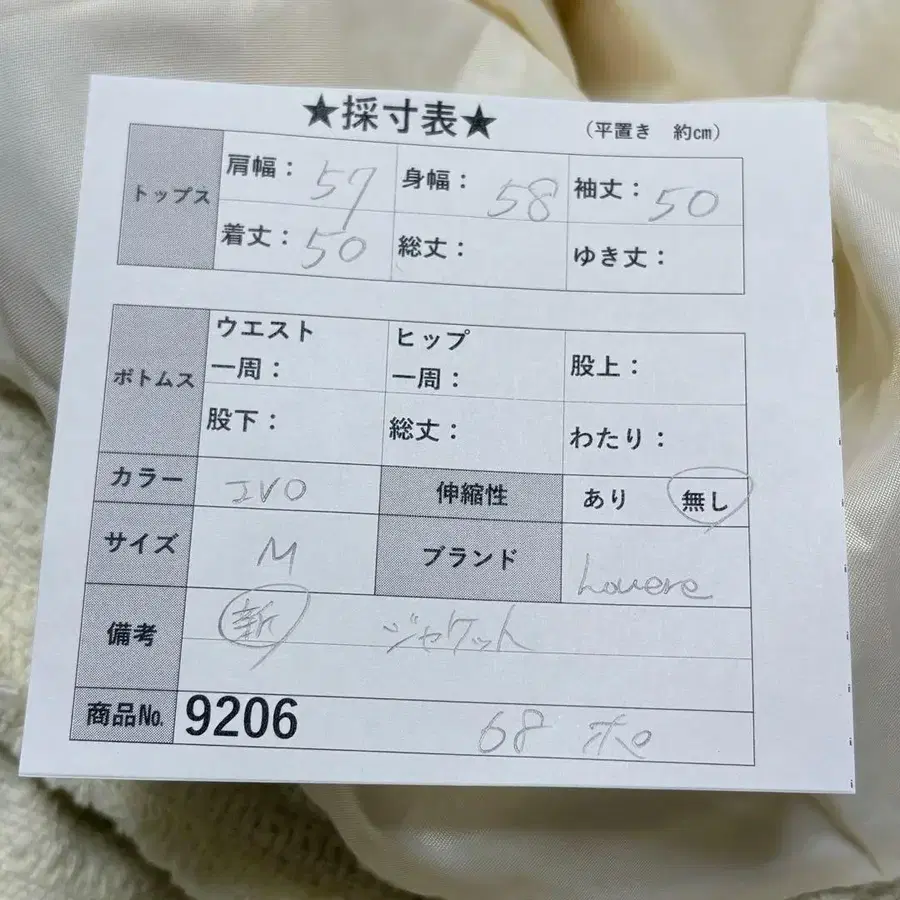 ★採寸表★ (平置き 約cm)
トップス 肩幅: 57 身幅: 58 袖丈: 50
着丈: 50 総丈: ゆき丈:
ボトムス ウエスト一周: ヒップ一周: 股上:
股下: 総丈: わたり:
カラー IVO 伸縮性 あり 無し
サイズ M ブランド Louere
備考 新 ジャケット
商品No. 9206 68 ポ